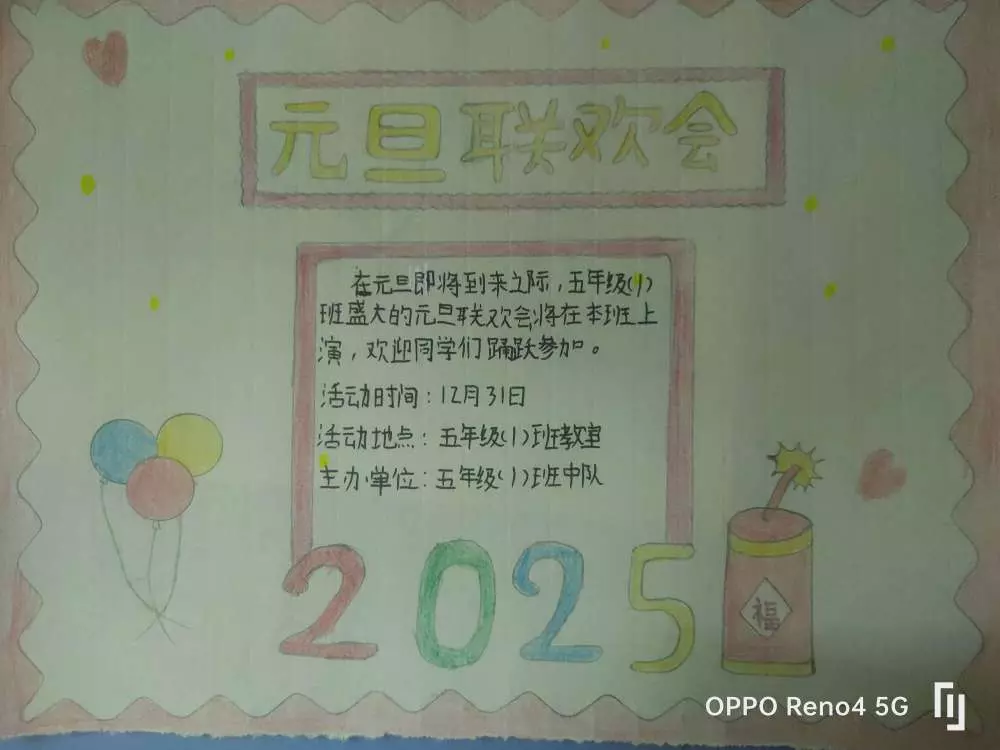 元旦联欢会
在元旦即将到来之际，五年级(1)
班盛大的元旦联欢会将在本班上
演，欢迎同学们踊跃参加。
活动时间：12月31日
活动地点：五年级(1)班教室
主办单位：五年级(1)班中队
2025
福
OPPO Reno4 5G